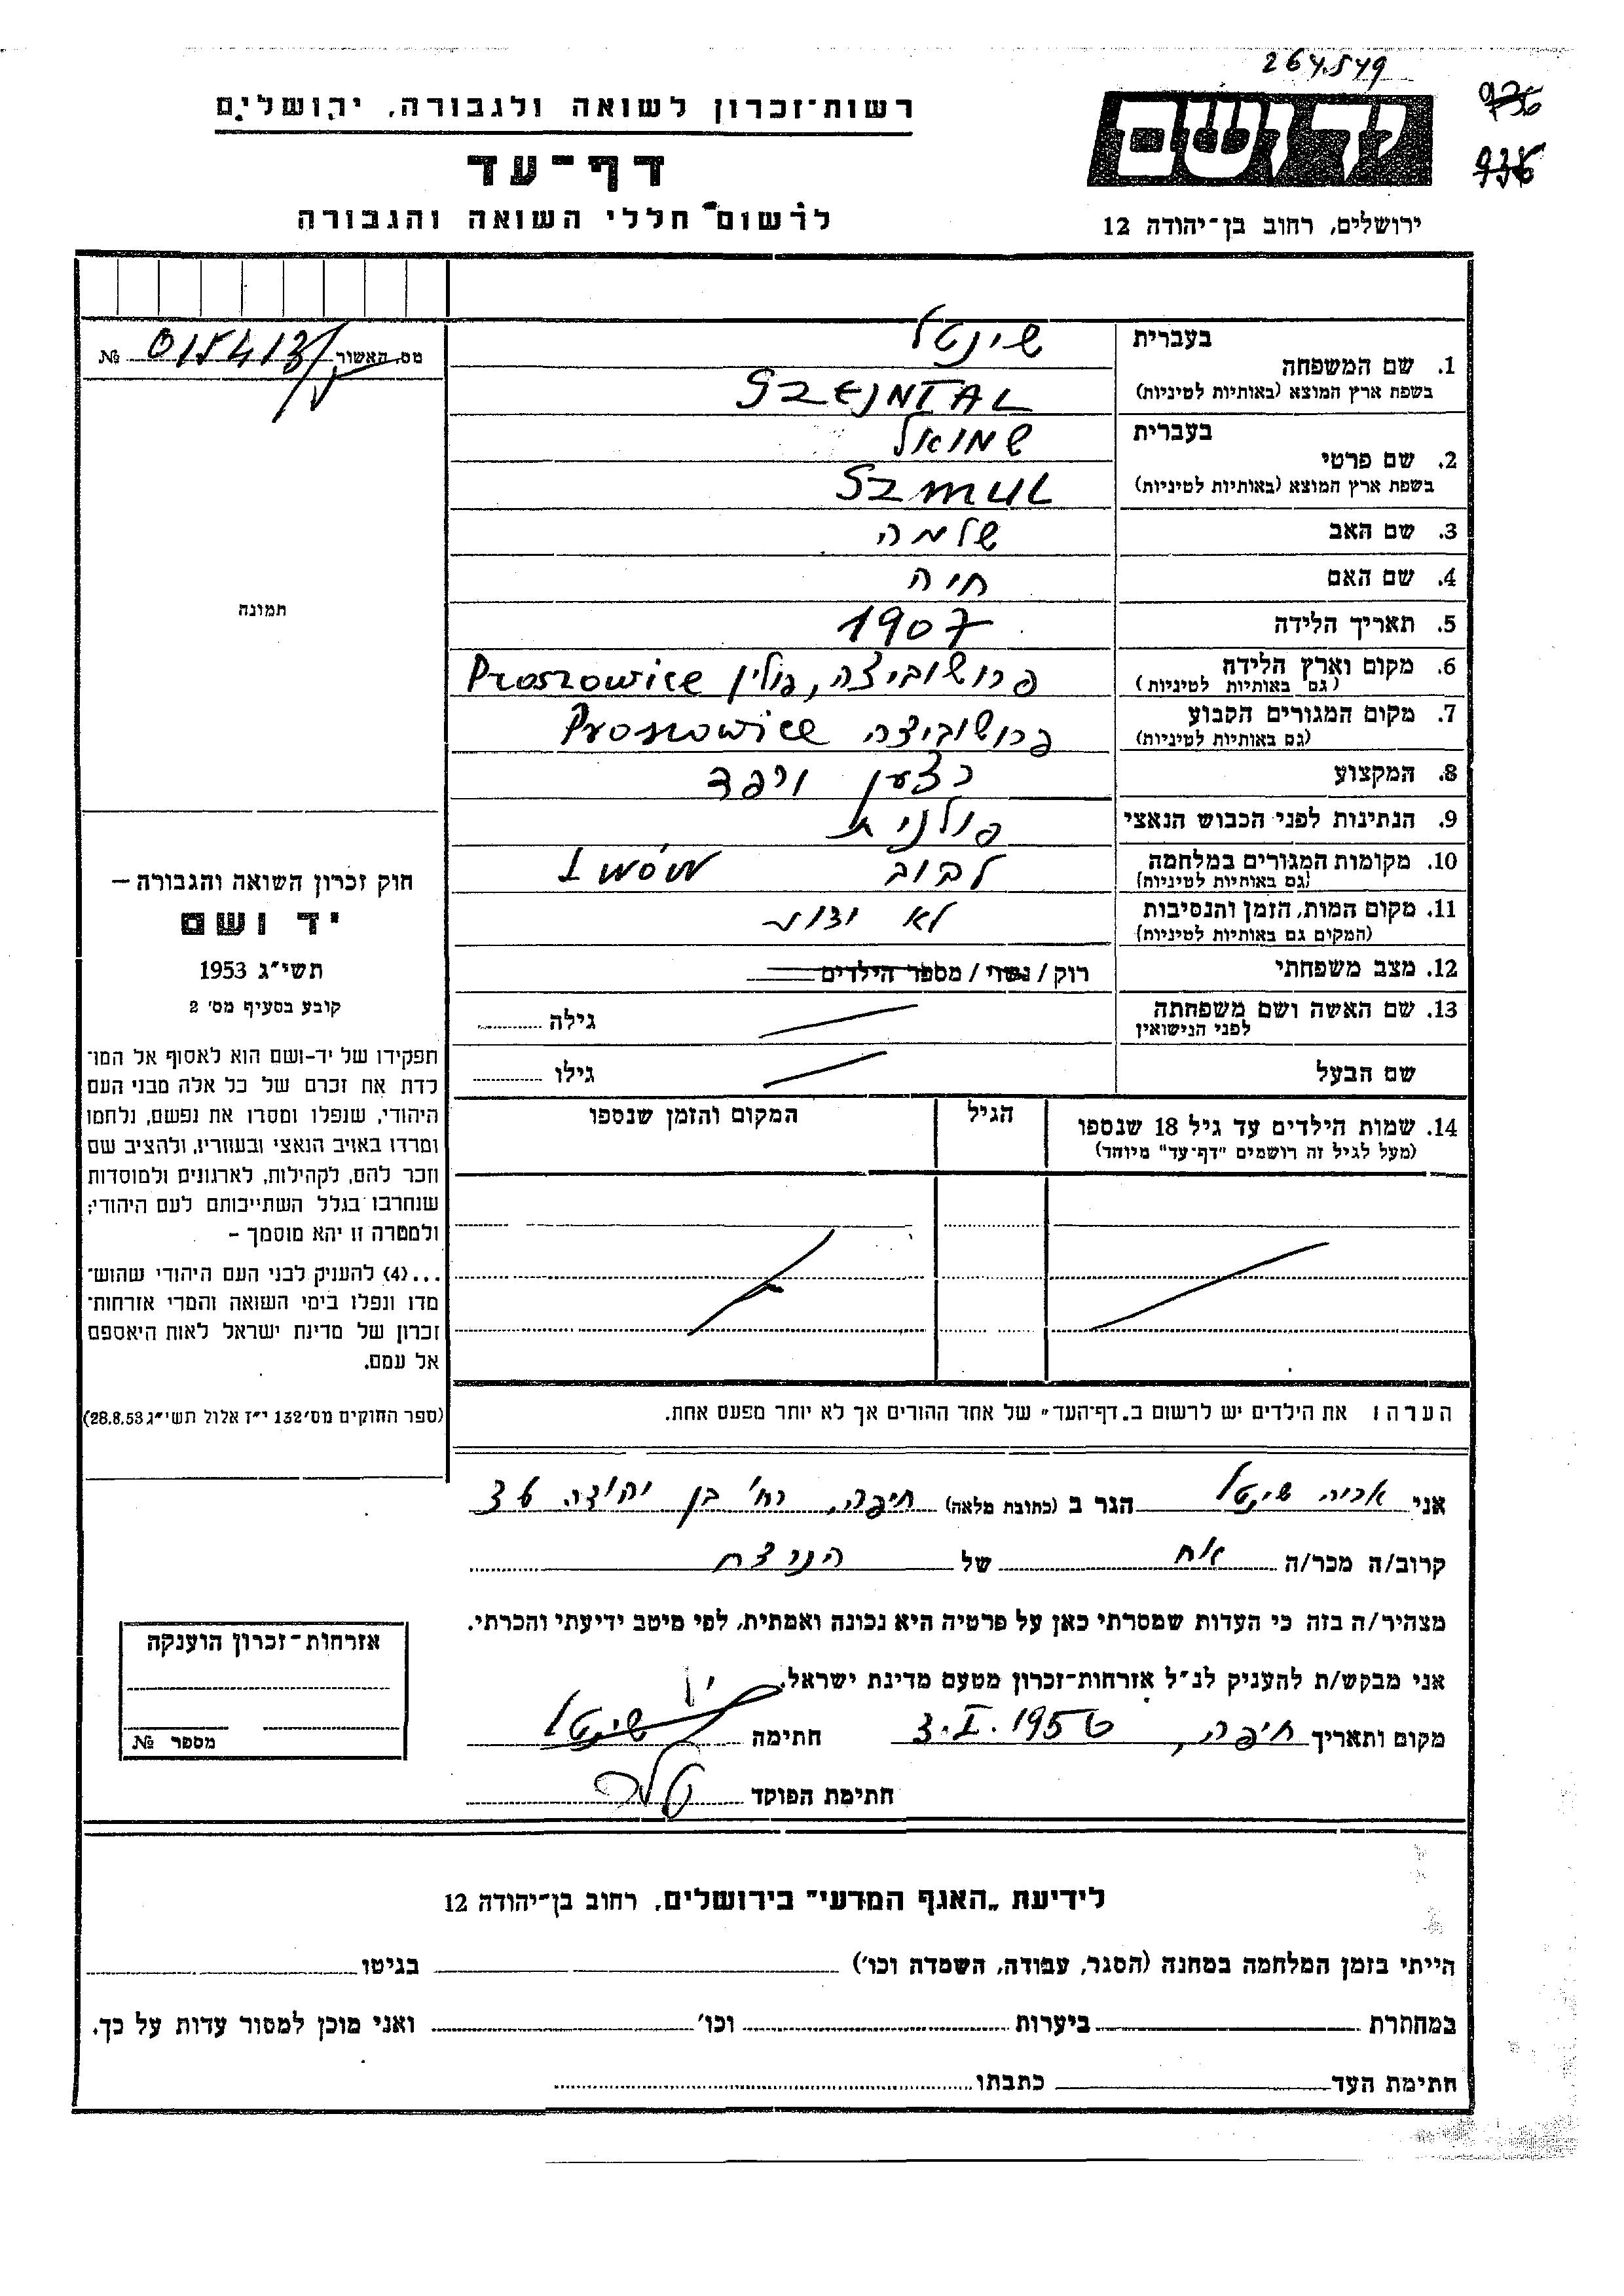 264549
936
936
רשות־זכרון לשואה ולגבורה, ירושלים
יד ושם
דף־עד
לרשום חללי השואה והגבורה
ירושלים, רחוב בן־יהודה 12
מס, האשור 015413 №
1. שם המשפחה בעברית שינטל
בשפת ארץ המוצא (באותיות לטיניות) SZEJNTAL
2. שם פרטי בעברית שמואל
בשפת ארץ המוצא (באותיות לטיניות) SZMUL
3. שם האב שלמה
4. שם האם חיה
תמונה
5. תאריך הלידה 1907
6. מקום וארץ הלידה פרושוביצה, פולין Proszowice
(גם באותיות לטיניות)
7. מקום המגורים הקבוע פרושוביצה Proszowice
(גם באותיות לטיניות)
8. המקצוע רצען ורפד
9. הנתינות לפני הכבוש הנאצי פולנית
10. מקומות המגורים במלחמה לבוב Lwów
(גם באותיות לטיניות)
11. מקום המות, הזמן והנסיבות לא ידוע
(המקום גם באותיות לטיניות)
12. מצב משפחתי רוק / נשוי / מספר הילדים
13. שם האשה ושם משפחתה גילה
לפני הנישואין
שם הבעל גילו
14. שמות הילדים עד גיל 18 שנספו הגיל המקום והזמן שנספו
(מעל לגיל זה רושמים "דף־עד" מיוחד)
הערה: את הילדים יש לרשום ב„דף־העד" של אחד ההורים אך לא יותר מפעם אחת.
חוק זכרון השואה והגבורה —
יד ושם
תשי"ג 1953
קובע בסעיף מס' 2
תפקידו של יד-ושם הוא לאסוף אל המו־
לדת את זכרם של כל אלה מבני העם
היהודי, שנפלו ומסרו את נפשם, נלחמו
ומרדו באויב הנאצי ובעוזריו, ולהציב שם
וזכר להם, לקהילות, לארגונים ולמוסדות
שנחרבו בגלל השתייכותם לעם היהודי;
ולמטרה זו יהא מוסמך —
...(4) להעניק לבני העם היהודי שהוש־
מדו ונפלו בימי השואה והמרי אזרחות־
זכרון של מדינת ישראל לאות היאספם
אל עמם.
(ספר החוקים מס' 132 י"ז אלול תשי"ג 28.8.53)
אני אריה שינטל הגר ב (כתובת מלאה) חיפה, רח' בן יהודה
קרוב/ה מכר/ה אח של הנרצח
מצהיר/ה בזה כי העדות שמסרתי כאן על פרטיה היא נכונה ואמתית, לפי מיטב ידיעתי והכרתי.
אני מבקש/ת להעניק לנ"ל אזרחות-זכרון מטעם מדינת ישראל.
מקום ותאריך חיפה, 3.I.1956 חתימה שינטל
חתימת הפוקד
אזרחות-זכרון הוענקה
מספר №
לידיעת „האגף המדעי" בירושלים, רחוב בן־יהודה 12
הייתי בזמן המלחמה במחנה (הסגר, עבודה, השמדה וכו') בגיטו
במחתרת ביערות וכו' ואני מוכן למסור עדות על כך.
חתימת העד כתבתו